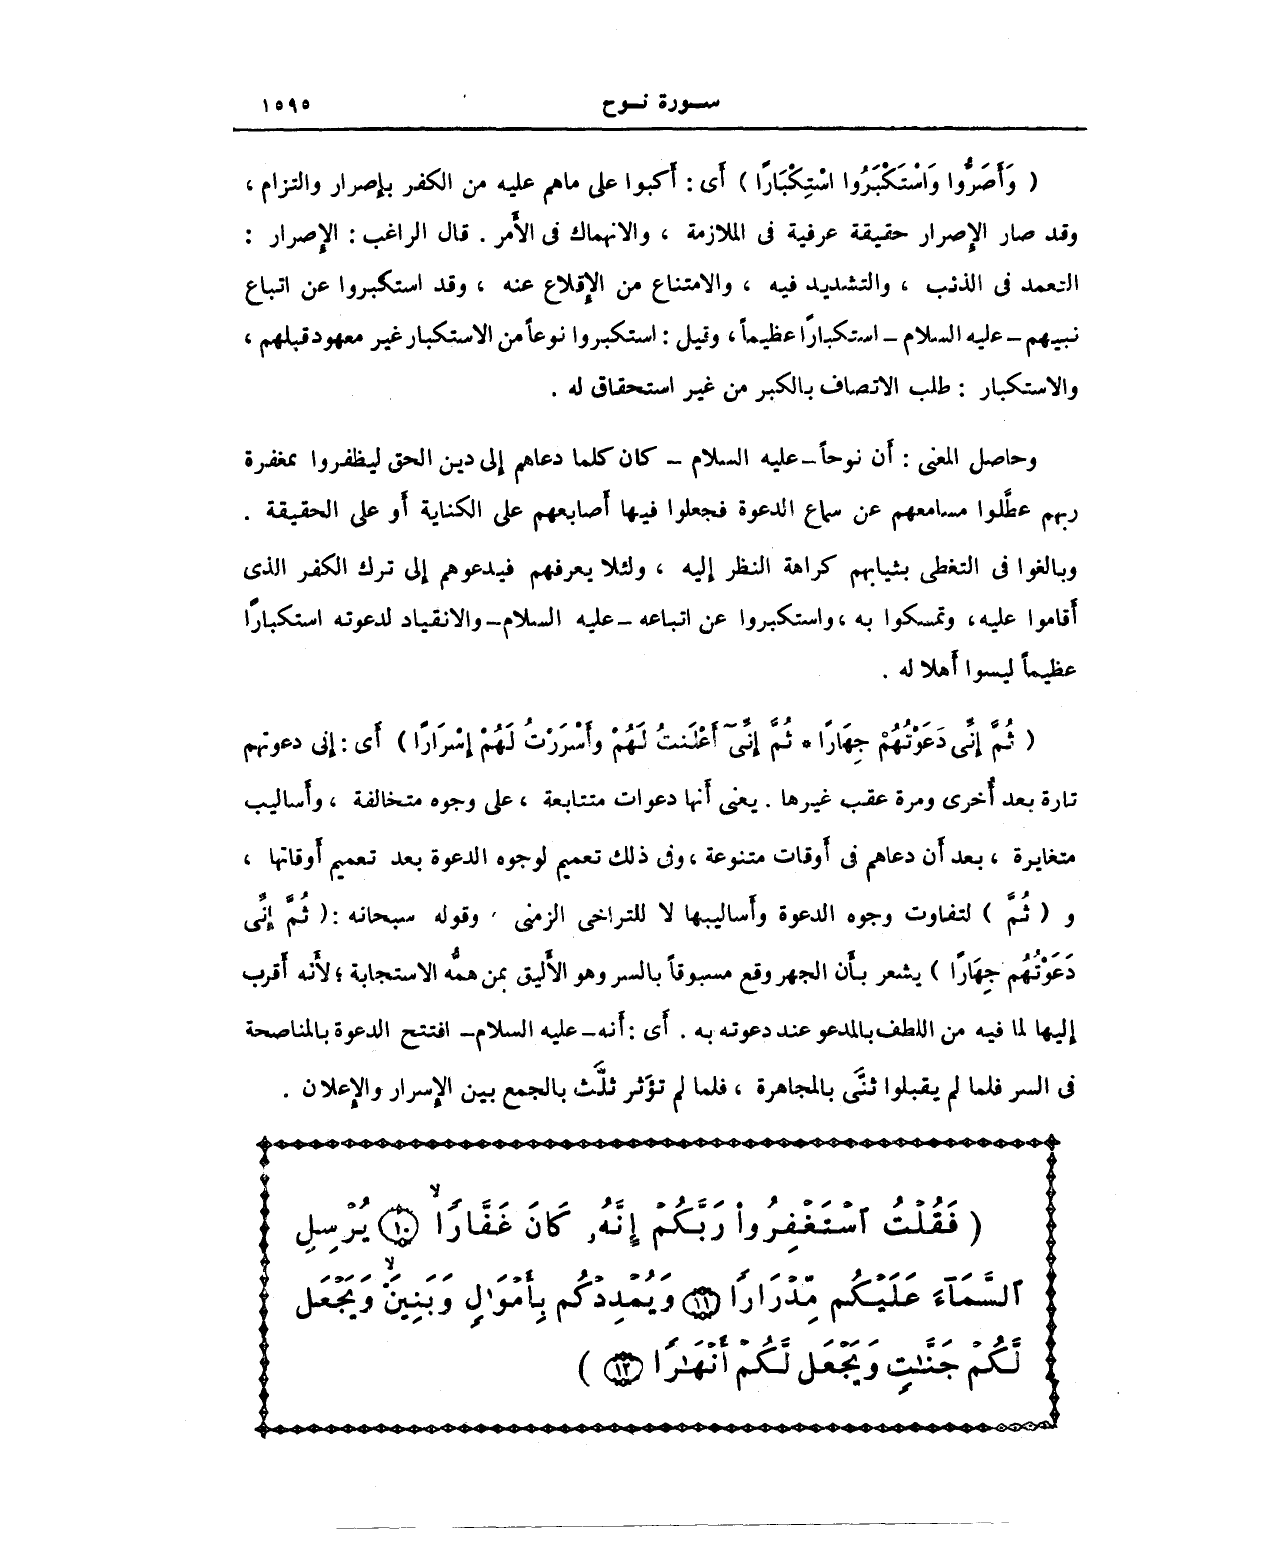 سورة نوح ١٥٩٥
( وَأَصَرُّوا وَاسْتَكْبَرُوا اسْتِكْبَارًا ) أى : أكبوا على ماهم عليه من الكفر بإصرار والتزام ،
وقد صار الإصرار حقيقة عرفية فى الملازمة ، والانهماك فى الأمر . قال الراغب : الإصرار :
التعمد فى الذنب ، والتشديد فيه ، والامتناع من الإقلاع عنه ، وقد استكبروا عن اتباع
نبيهم – عليه السلام – استكبارًا عظيماً ، وقيل : استكبروا نوعاً من الاستكبار غير معهود قبلهم ،
والاستكبار : طلب الاتصاف بالكبر من غير استحقاق له .
وحاصل المعنى : أن نوحاً – عليه السلام – كان كلما دعاهم إلى دين الحق ليظفروا بمغفرة
ربهم عطَّلوا مسامعهم عن سماع الدعوة فجعلوا فيها أصابعهم على الكناية أو على الحقيقة .
وبالغوا فى التغطى بثيابهم كراهة النظر إليه ، ولئلا يعرفهم فيدعوهم إلى ترك الكفر الذى
أقاموا عليه ، وتمسكوا به ، واستكبروا عن اتباعه – عليه السلام – والانقياد لدعوته استكبارًا
عظيماً ليسوا أهلا له .
( ثُمَّ إِنِّى دَعَوْتُهُمْ جِهَارًا * ثُمَّ إِنِّىٓ أَعْلَنتُ لَهُمْ وأَسْرَرْتُ لَهُمْ إِسْرَارًا ) أى : إنى دعوتهم
تارة بعد أُخرى ومرة عقب غيرها . يعنى أنها دعوات متتابعة ، على وجوه متخالفة ، وأساليب
متغايرة ، بعد أن دعاهم فى أوقات متنوعة ، وفى ذلك تعميم لوجوه الدعوة بعد تعميم أوقاتها ،
و ( ثُمَّ ) لتفاوت وجوه الدعوة وأساليبها لا للتراخى الزمنى ، وقوله سبحانه : ( ثُمَّ إِنِّى
دَعَوْتُهُم جِهَارًا ) يشعر بأن الجهر وقع مسبوقاً بالسر وهو الأليق بمن همُّه الاستجابة ؛ لأنه أقرب
إليها لما فيه من اللطف بالمدعو عند دعوته به . أى : أنه – عليه السلام – افتتح الدعوة بالمناصحة
فى السر فلما لم يقبلوا ثنَّى بالمجاهرة ، فلما لم تؤثر ثلَّث بالجمع بين الإسرار والإعلان .
( فَقُلْتُ ٱسْتَغْفِرُوا۟ رَبَّكُمْ إِنَّهُۥ كَانَ غَفَّارًا ۙ ١٠ يُرْسِلِ
ٱلسَّمَآءَ عَلَيْكُم مِّدْرَارًا ١١ وَيُمْدِدْكُم بِأَمْوَٰلٍ وَبَنِينَ ۙ وَيَجْعَل
لَّكُمْ جَنَّٰتٍ وَيَجْعَل لَّكُمْ أَنْهَٰرًا ١٢ )